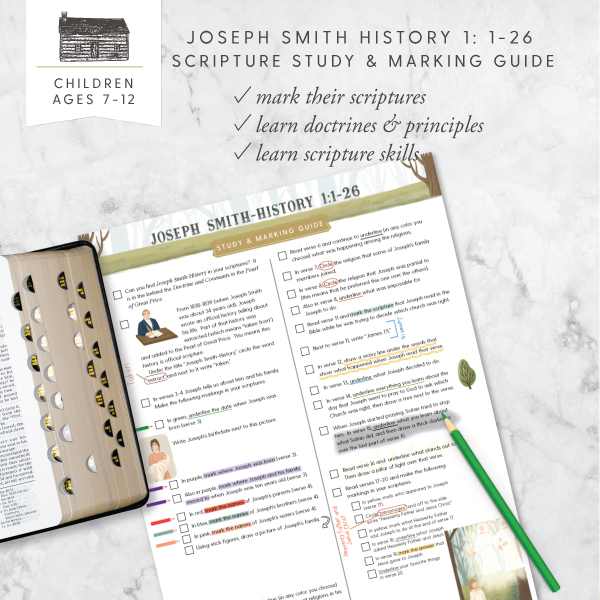 JOSEPH SMITH HISTORY 1: 1-26
SCRIPTURE STUDY & MARKING GUIDE
CHILDREN
AGES 7-12
✓ mark their scriptures
✓ learn doctrines & principles
✓ learn scripture skills
JOSEPH SMITH-HISTORY 1:1-26
STUDY & MARKING GUIDE
Can you find Joseph Smith-History in your scriptures? It
is in the behind the Doctrine and Commants in the Pearl
of Great Price.
From 1838-1839 (when Joseph Smith
was about 34 years old), Joseph
wrote an official history telling about
his life. Part of that history was
extracted (which means "taken from")
and added to the Pearl of Great Price. This means this
history is official scripture.
Under the title "Joseph Smith-History" circle the word
"extract" and next to it write "taken"
In verses 3-4 Joseph tells us about him and his family.
Make the following markings in your scriptures.
In green, underline the date when Joseph was
born (verse 3).
Write Joseph's birthdate next to this picture.
In purple, mark where Joseph was born (verse 3).
Also in purple, mark where Joseph and his family
moved to when Joseph was ten years old (verse 3).
In red mark the names of Joseph's parents (verse 4).
In blue, mark the names of Joseph's brothers (verse 4).
In pink, mark the names of Joseph's sisters (verse 4).
Using stick figures, draw a picture of Joseph's family
Read verse 6 and continue to underline (in any color you
choose) what was happening among the religions.
In verse 7 Circle the religion that some of Joseph's family
members joined.
In verse 8 Circle the religion that Joseph was partial to
(this means that he preferred this one over the others).
Also in verse 8, underline what was impossible for
Joseph to do.
Read verse 11 and mark the scripture that Joseph read in the
Bible while he was trying to decide which church was right.
Next to verse 11, write "James 1:5"
In verse 12, draw a wavy line under the words that
show what happened when Joseph read that verse.
In verse 13, underline what Joseph decided to do.
In verse 14, underline everything you learn about the
day that Joseph went to pray to God to ask which
Church was right, then draw a tree next to the verse.
When Joseph started praying, Satan tried to stop
him. In verse 15, underline what you learn about
what Satan did, and then draw a thick
over the last part of verse 15.
Read verse 16 and underline what stands out
Then draw a pillar of light over that verse.
Read verses 17-20 and make the following
markings in your scriptures.
In yellow, mark who appeared to Joseph
(verse 17).
Circle personages and off to the side
write "Heavenly Father and Jesus Christ"
In yellow, mark what Heavenly Father
told Joseph to do at the end of verse 17.
In verse 18, underline what Joseph
asked Heavenly Father and Jesus
In verse 19, mark the answer that
Jesus gave to Joseph.
Underline your favorite things
in verse 20.